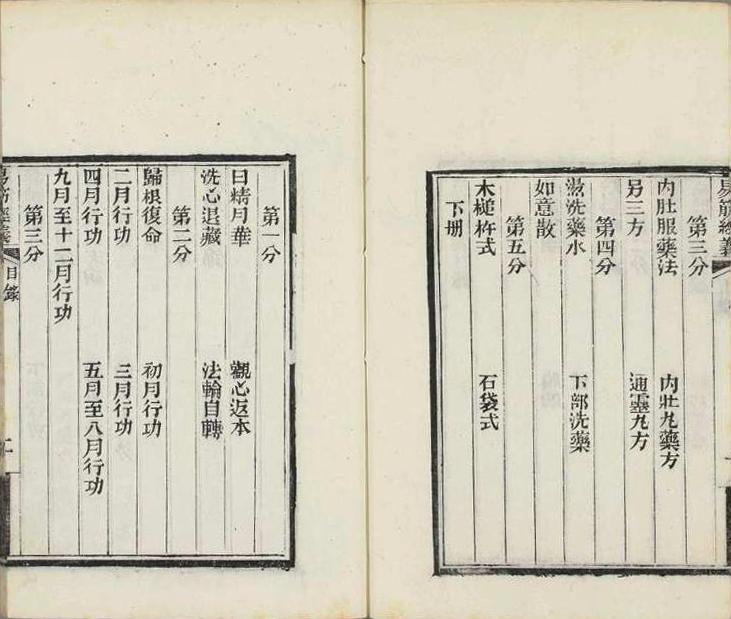 易筋經義
第三分
內壯服藥法 內壯丸藥方
另三方 通靈丸方
第四分
湯洗藥水 下部洗藥
如意散
第五分
木槌杵式 石袋式
下册
第一分
日精月華 觀心返本
洗心退藏 法輪自轉
第二分
歸根復命 初月行功
二月行功 三月行功
四月行功 五月至八月行功
九月至十二月行功
第三分
易筋經義 目錄